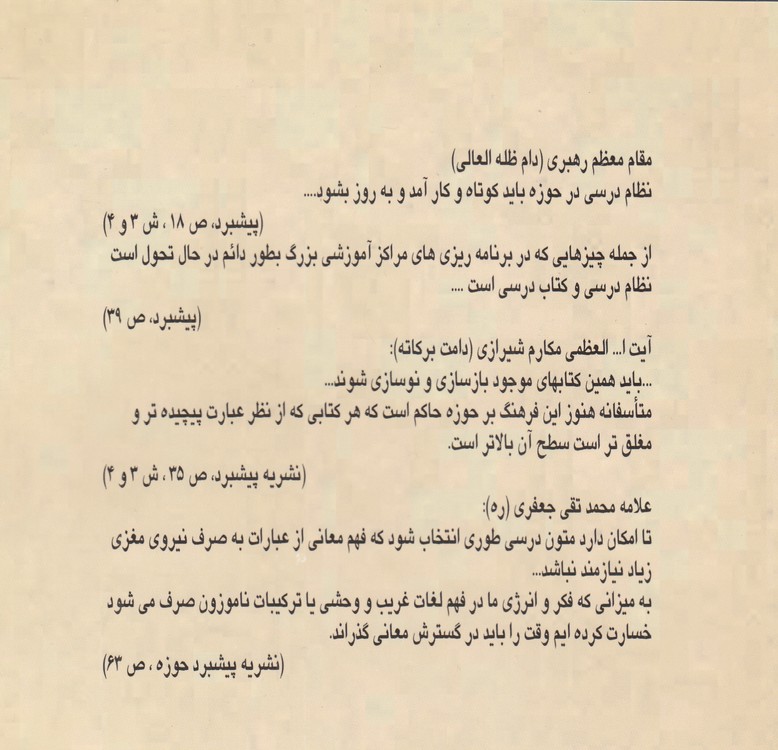 مقام معظم رهبری (دام ظله العالی)
نظام درسی در حوزه باید کوتاه و کار آمد و به روز بشود....
(پیشبرد، ص ۱۸ ، ش ۳ و ۴)
از جمله چیزهایی که در برنامه ریزی های مراکز آموزشی بزرگ بطور دائم در حال تحول است
نظام درسی و کتاب درسی است ....
(پیشبرد، ص ۳۹)
آیت ا... العظمی مکارم شیرازی (دامت برکاته):
...باید همین کتابهای موجود بازسازی و نوسازی شوند...
متأسفانه هنوز این فرهنگ بر حوزه حاکم است که هر کتابی که از نظر عبارت پیچیده تر و
مغلق تر است سطح آن بالاتر است.
(نشریه پیشبرد، ص ۳۵ ، ش ۳ و ۴)
علامه محمد تقی جعفری (ره):
تا امکان دارد متون درسی طوری انتخاب شود که فهم معانی از عبارات به صرف نیروی مغزی
زیاد نیازمند نباشد...
به میزانی که فکر و انرژی ما در فهم لغات غریب و وحشی یا ترکیبات ناموزون صرف می شود
خسارت کرده ایم وقت را باید در گسترش معانی گذراند.
(نشریه پیشبرد حوزه ، ص ۶۳)